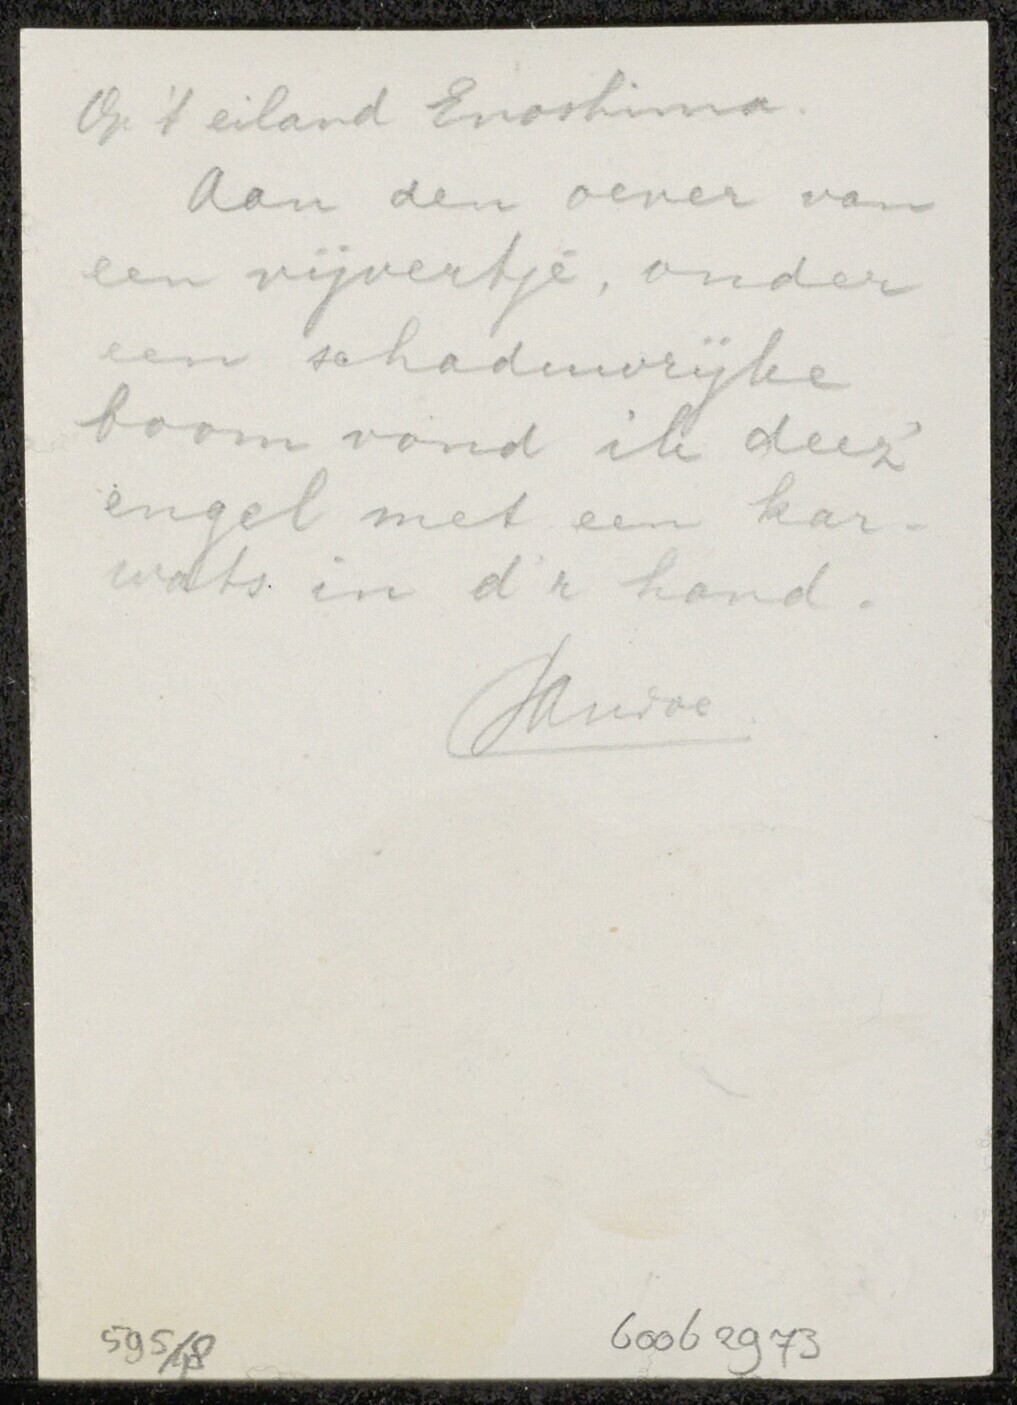 Op 't eiland Enoshima.
Aan den oever van
een vijvertje, onder
een schaduwrijke
boom vond ik deez'
engel met een kar-
wats in d'r hand.
595/18
60062973